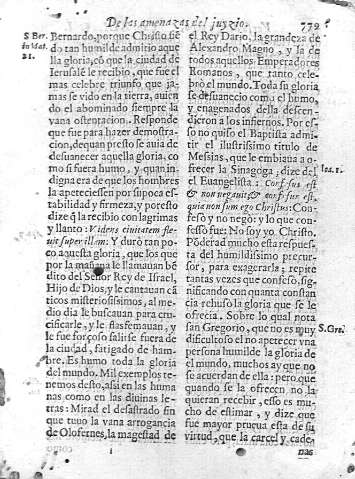 De las amenazas del juyzio. 779
S Ber.
in Mat.
21.
Bernardo, porque Christo siẽ
do tan humilde admitio aque
lla gloria, cõ que la ciudad de
Ierusalẽ le recibio, que fue el
mas celebre triunfo que ja-
mas se vido en la tierra, auien
do el abominado siempre la
vana ostentacion. Responde
que fue para hazer demostra-
cion, de quan presto se auia de
desuanecer aquella gloria, co
mo si fuera humo, y quan in-
digna era de que los hombres
la apeteciessen por su poca es-
tabilidad y firmeza, y por esto
dize q̃ la recibio con lagrimas
y llanto: Videns civitatem fle-
uit super illam: Y durò tan po-
co aquesta gloria, que los que
por la mañana le llamauan bẽ
dito del Señor Rey de Israel,
Hijo de Dios, y le cantauan cã
ticos misteriosissimos, al me-
dio dia le buscauan para cru-
cificarle, y le blasfemauan, y
le fue forçoso salirse fuera de
la ciudad, fatigado de ham-
bre. Es humo toda la gloria
del mundo. Mil exemplos te-
nemos desto, assi en las huma
nas como en las diuinas le-
tras: Mirad el desastrado fin
que tuuo la vana arrogancia
de Olofernes, la magestad de
el Rey Dario, la grandeza de
Alexandro Magno, y la de
todos aquellos Emperadores
Romanos, que tanto cele-
brò el mundo. Toda su gloria
se desuanecio como el humo,
y enagenados della descen-
dieron a los infiernos. Por es-
so no quiso el Baptista admi-
tir el ilustrissimo titulo de
Messias, que le embiaua a o-
frecer la Sinagoga, dize del
el Euangelista: Confessus est
& non negauit & confessus est,
quia non sum ego Christus: Con-
fessò y no negò: y lo que con-
fessò fue: No soy yo Christo.
Põderad mucho esta respues-
ta del humildissimo precur-
sor, para exagerarla; repite
tantas vezes que confesò, sig-
nificando con quanta constan
cia rehusò la gloria que se le
ofrecia. Sobre lo qual nota
san Gregorio, que no es muy
dificultoso el no apetecer vna
persona humilde la gloria de
el mundo, muchos ay que no
se acuerdan de ella: pero que
quando se la ofrecen no la
quieran recibir, esso es mu-
cho de estimar, y dize que
fue mayor prueua esta de su
virtud, que la carcel y cade-
nas
Ioa. 1.
S. Gre.